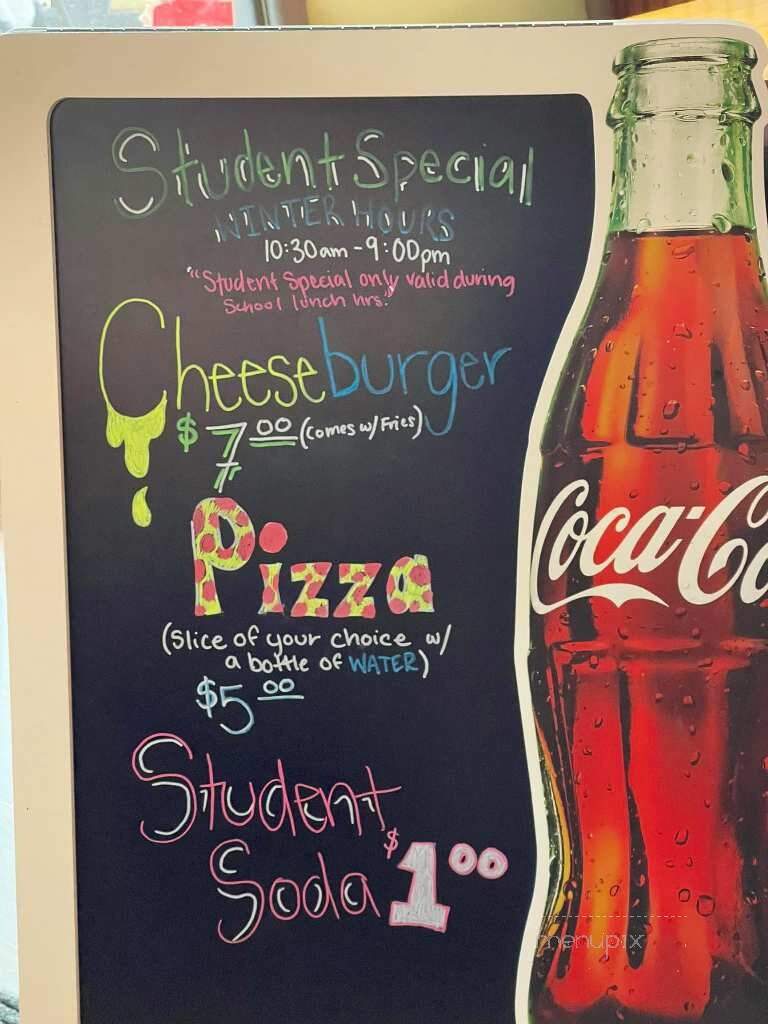 Student Special
WINTER HOURS
10:30am - 9:00pm
"Student Special only valid during
School lunch hrs."
Cheeseburger
$7.00 (Comes w/ Fries)
Pizza
(Slice of your choice w/
a bottle of WATER)
$5.00
Student
Soda $1.00
Coca-Co
menupix